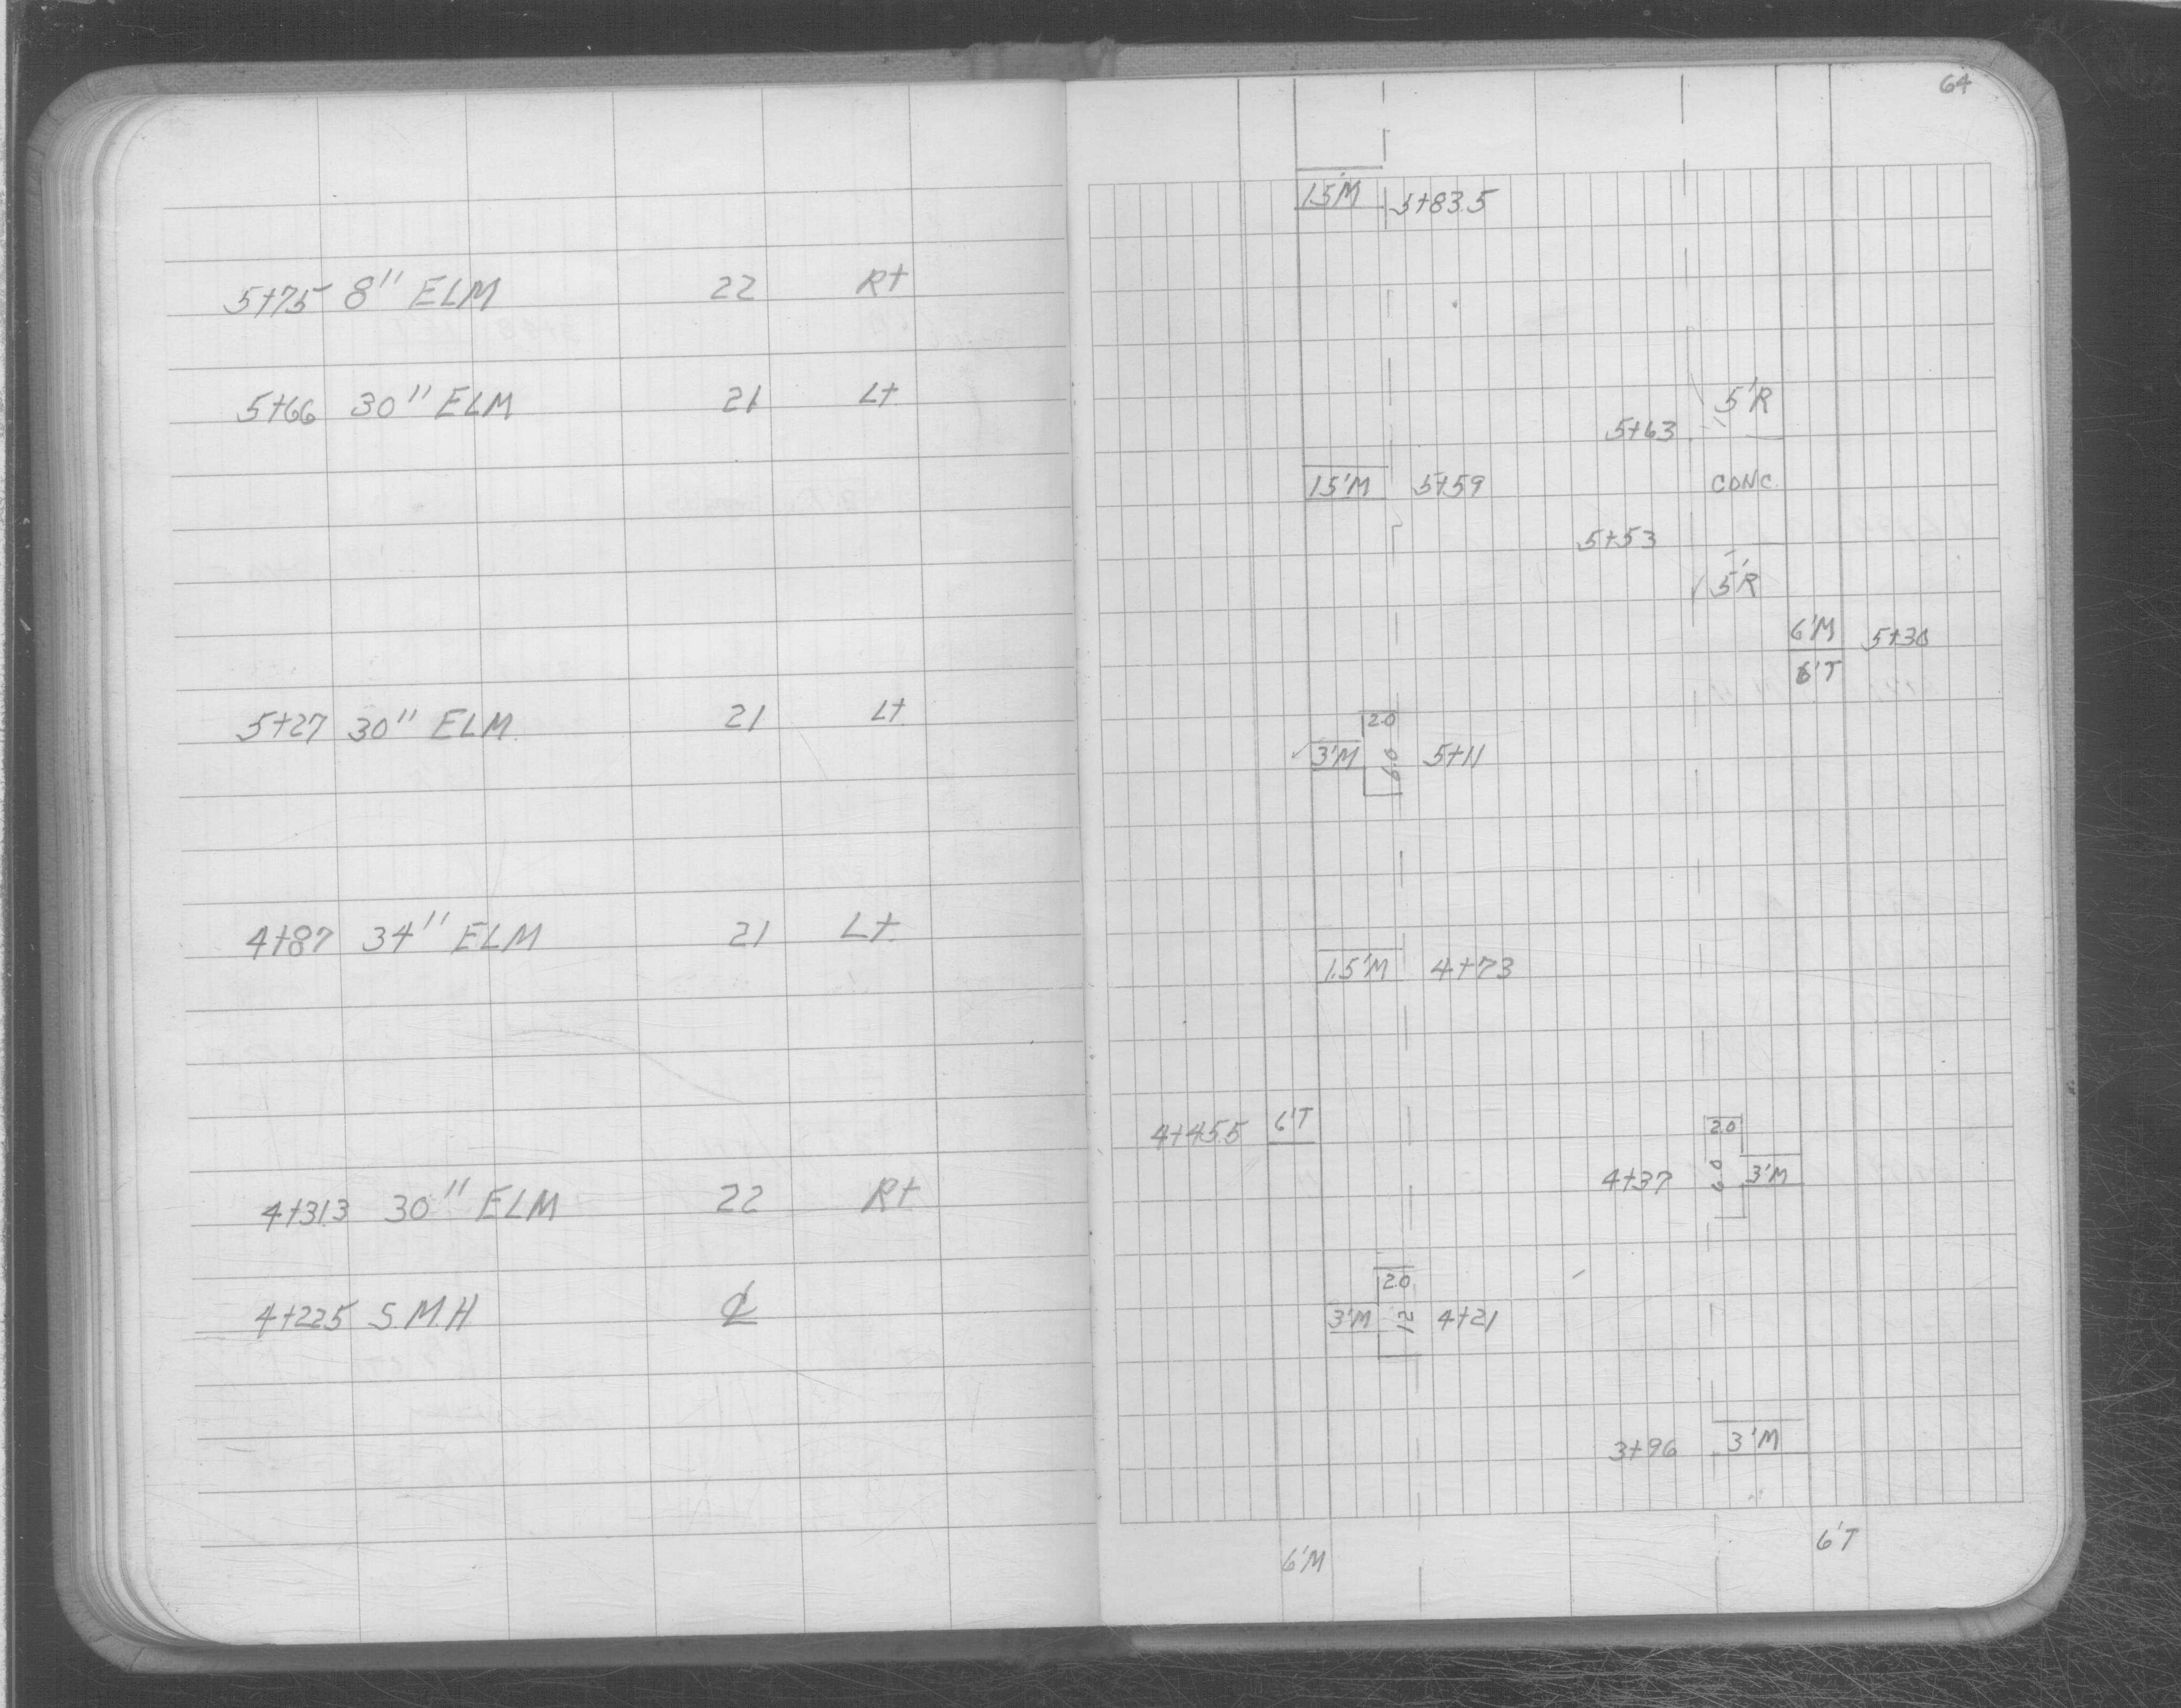 5+75 8" ELM 22 Rt
5+66 30" ELM 21 Lt
5+27 30" ELM. 21 Lt
4+87 34" ELM 21 Lt.
4+31.3 30" ELM 22 Rt
4+22.5 S.M.H ℄
64
1.5'M 5+83.5
5'R
5+63
1.5'M 5+59 CONC.
5+53
5'R
6'M 5+30
6'T
2.0
3'M 6.0 5+11
1.5'M 4+73
4+45.5 6'T
2.0
4+37 6.0 3'M
2.0
3'M 12 4+21
3+96 3'M
6'M 6'T